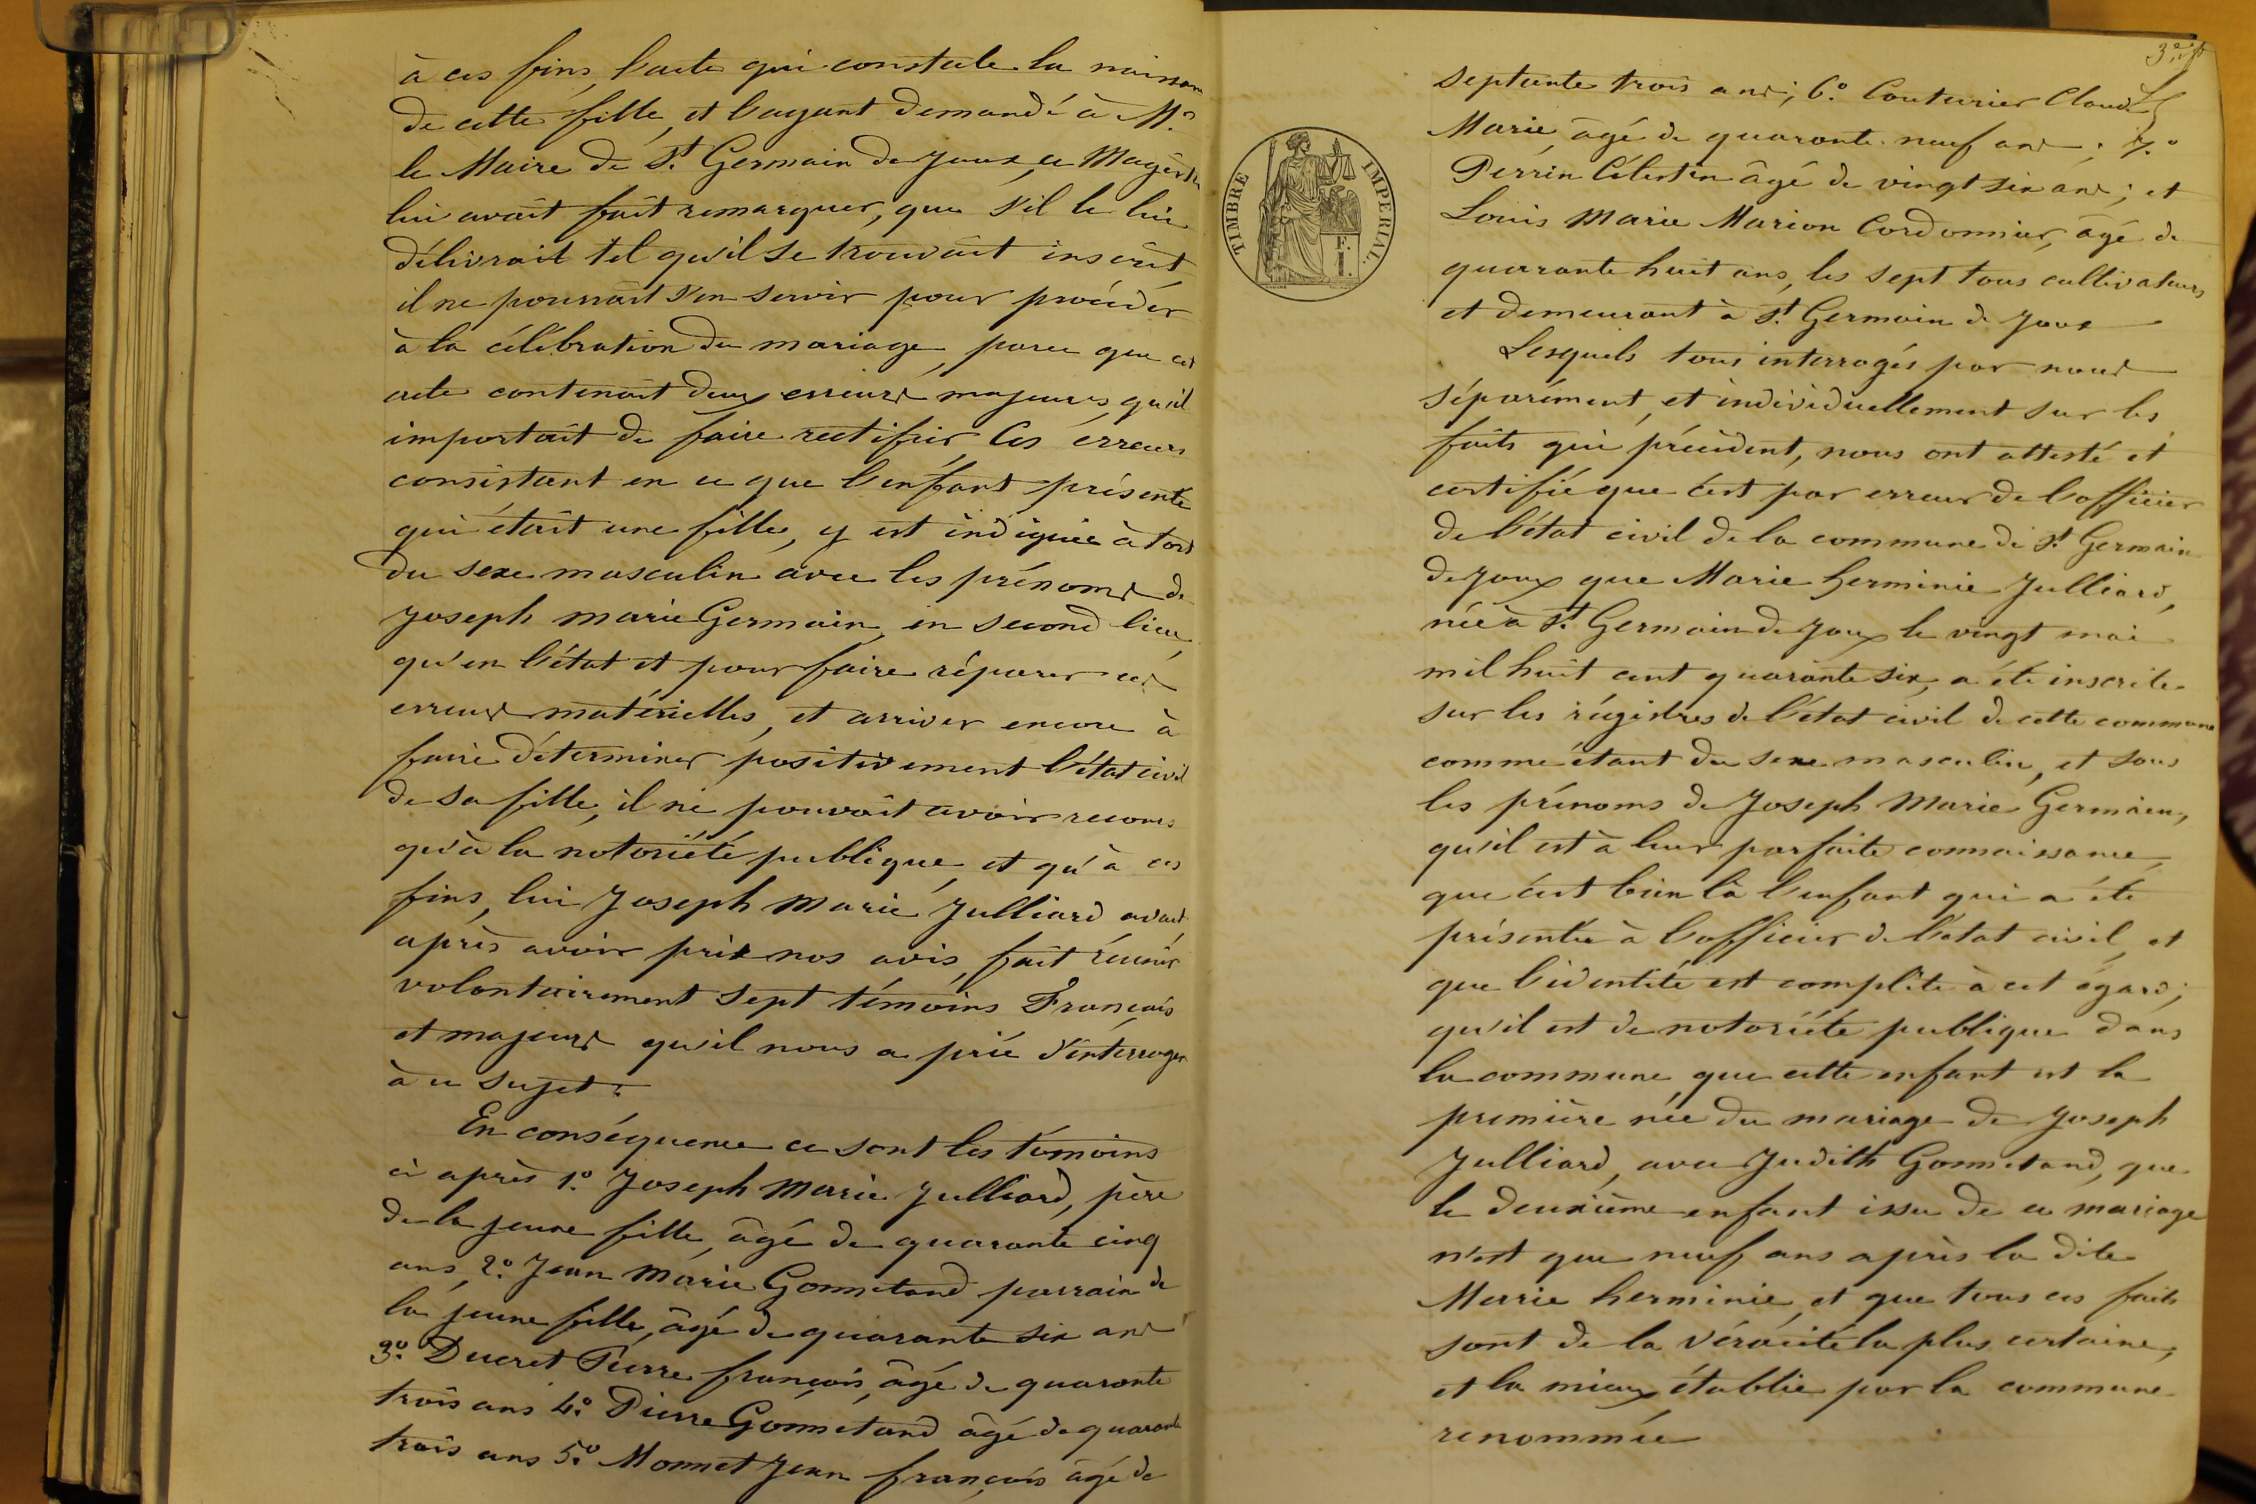 à ces fins, l'acte qui constate la naissance
de cette fille, et l'ayant demandé à Mr
le Maire de St Germain de Joux, ce Magistrat
lui avait fait remarquer, que s'il le lui
délivrait tel qu'il se trouvait inscrit
il ne pourrait s'en servir pour procéder
à la célébration du mariage, parce que cet
acte contenait deux erreurs majeures, qu'il
importait de faire rectifier, Ces erreurs
consistant en ce que l'enfant présenté
qui était une fille, y est indiquée à tort
du sexe masculin avec les prénoms de
Joseph marie Germain, en second lieu,
qu'en l'état et pour faire réparer ces
erreurs matérielles, et arriver encore à
faire déterminer positivement l'état civil
de sa fille, il ne pouvait avoir recours
qu'à la notoriété publique, et qu'à ces
fins, lui Joseph Marie Julliard avait
après avoir pris nos avis, fait réunir
volontairement sept témoins Français
et majeurs qu'il nous a prié d'interroger
à ce sujet :
En conséquence ce sont les témoins
ci après 1o Joseph Marie Julliard, père
de la jeune fille, âgé de quarante cinq
ans, 2o Jean Marie Gonnetand parrain de
la jeune fille, âgé de quarante six ans
3o Ducret Pierre françois, âgé de quarante
trois ans 4o Pierre Gonnetand âgé de quarante
trois ans 5o Monnet Jean françois âgé de
3e
septante trois ans ; 6o Couturier Claude
Marie, âgé de quarante neuf ans ; 7o
Perrin Célestin âgé de vingt six ans ; et
Louis Marie Marion Cordonnier, âgé de
quarante huit ans, les sept tous cultivateurs
et demeurant à St Germain de Joux
TIMBRE IMPERIAL.
F.
I.
Lesquels tous interrogés par nous
séparément, et individuellement sur les
faits qui précèdent, nous ont attesté et
certifié que c'est par erreur de l'officier
de l'état civil de la commune de St Germain
de Joux que Marie herminie Julliard,
née à St Germain de Joux le vingt mai
mil huit cent quarante six, a été inscrite
sur les régistres de l'état civil de cette commune
comme étant du sexe masculin, et sous
les prénoms de Joseph Marie Germain,
qu'il est à leur parfaite connaissance,
que c'est bien là l'enfant qui a été
présentée à l'officier de l'état civil, et
que l'identité est complète à cet égard ;
qu'il est de notoriété publique dans
la commune, que cette enfant est la
première née du mariage de Joseph
Julliard, avec Judith Gonnetand, que
le deuxième enfant issu de ce mariage
n'est que neuf ans après la dite
Marie herminie, et que tous ces faits
sont de la véracité la plus certaine,
et la mieux établie par la commune
renommée